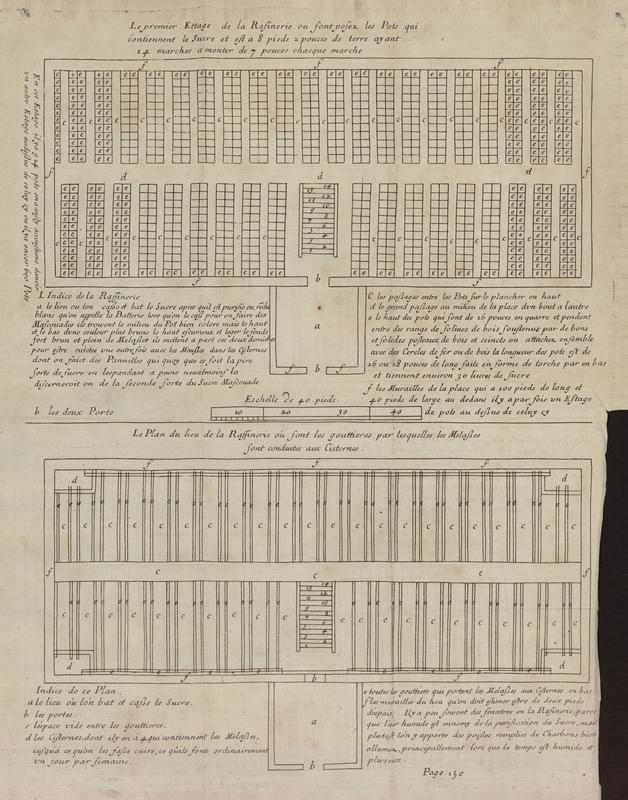 Le premier Ettage de la Rafinerie ou sont posez les Pots qui
contiennent le Sucre et est a 8 pieds 2 pouces de terre ayant
14 marches a monter de 7 pouces chasque marche
En cet Estage il y a pots on a
vn autre Estage audessus de celuy cy ou il y a encor
L Indice de la Raffinerie
a le lieu ou lon casse et bat le Sucre apres quil est purifié ou
blanc qu'on appelle la Batterie lors qu'on le casse pour en faire des
Mascouades ils trouvent le milieu du Pot bien colore mais le haut
et le bas dune couleur plus brune le haut escumeux et leger le fonds
fort brun et plein de Melasses ils mettent a part ces deux derniers
pour estre cuistes une autre fois auec les Mousses dans les Cisternes
dont on faict des Pannelles qui quoy que ce soit la pire
sorte de sucre en lespandant a peine neantmoins la
discerneroit on de la seconde sorte du Sucre Mascouade
b les deux Porte
C les passages entre les Pots sur le plancher en haut
d le grand passage au milieu de la place d'vn bout a lautre
e le haut des pots qui sont de 16 pouces en quarré et pendent
entre des rangs de soliues de bois soustenus par de bons
et solides posteaux de bois et ceincts ou attachez ensemble
avec des Cercles de fer ou de bois la longueur des pots est de
26 ou 28 pouces de long faits en forme de torche par en bas
et tiennent enuiron 30 liures de sucre
f les Murailles de la place qui a 100 pieds de long et
40 pieds de large au dedans il y a par fois vn Estage
de pots au dessus de celuy cy
Eschelle de 40 pieds.
10 20 30 40
Le Plan du lieu de la Raffinerie où sont les gouttieres par lesquelles les Melasses
sont conduites aux Cisternes.
Indice de ce Plan,
a le lieu où lon bat et casse le Sucre.
b les portes.
c lespace vide entre les gouttieres.
d les Cisternes, dont il y en a 4 qui contiennent les Melasses,
iusqu'a ce qu'on les fasse cuire, ce qu'ils font ordinairement
vn jour par semaine.
e toutes les gouttiers qui portent les Melasses aux Cisternes en bas
f les murailles du lieu qu'on doit estre de deux pieds
despais. Il y a peu souvent des fenestres en la Rafinerie, parce
que lair humide est ennemy de la purification du Sucre, mais
plutost lon y apporte des poisles remplies de Charbons bien
allumez, principallement lors que le temps est humide et
pluuieux.
Page 150